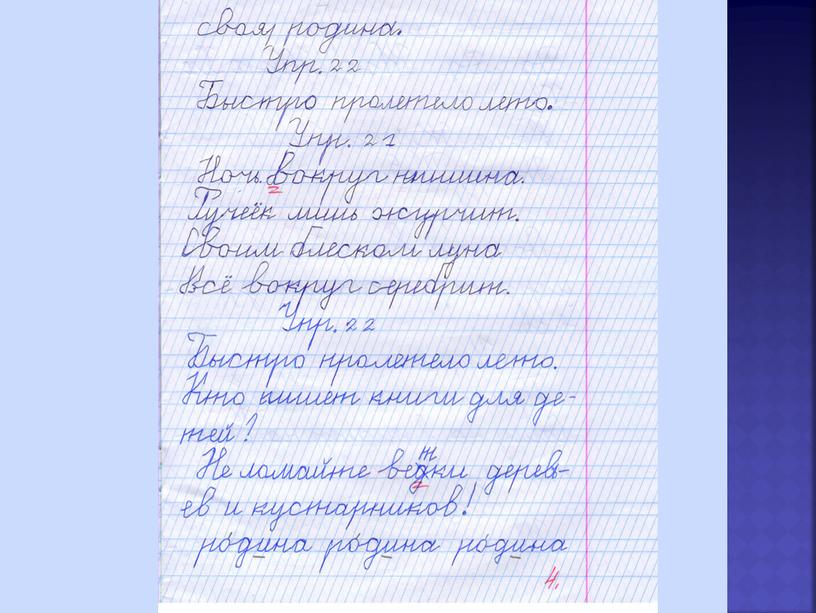 своя родина.
Упр. 22
Быстро пролетело лето.
Упр. 21
Ночь. Вокруг тишина.
Ручеёк лишь журчит.
Своим блеском луна
Всё вокруг серебрит.
Упр. 22
Быстро пролетело лето.
Кто пишет книги для де-
тей?
Не ломайте ведки деревь-
т
ев и кустарников!
родина родина родина
4.